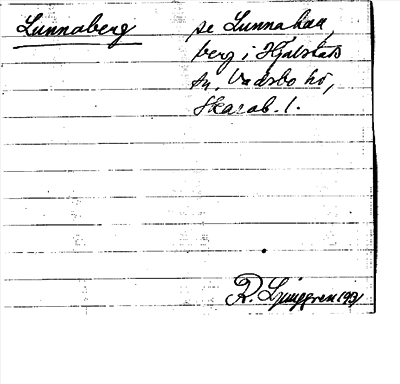 Lunnaberg
se Lunnahau,
berg i Hjälstads
sn, Vadsbo hd,
Skarab. l.
R. Ljunggren 1921